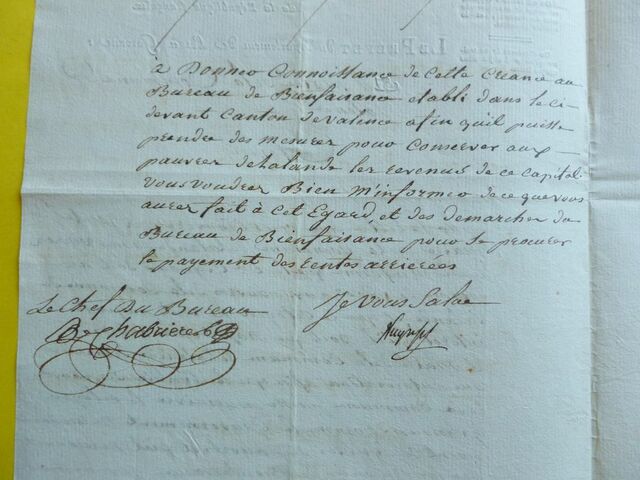 à Donner Connoissance de Cette Créance au
Bureau de Bienfaisance établi dans le ci
devant Canton de Valence afin qu'il puisse
prendre des mesures pour Conserver aux
pauvres de Lalande les revenus de ce Capital.
vous voudrez Bien m'informer de ce que vous
aurez fait à Cet Egard, et des demarches du
Bureau de Bienfaisance pour se procurer
le payement des rentes arrierées
Je vous Salue
Le Chef Du Bureau
Chabrieres